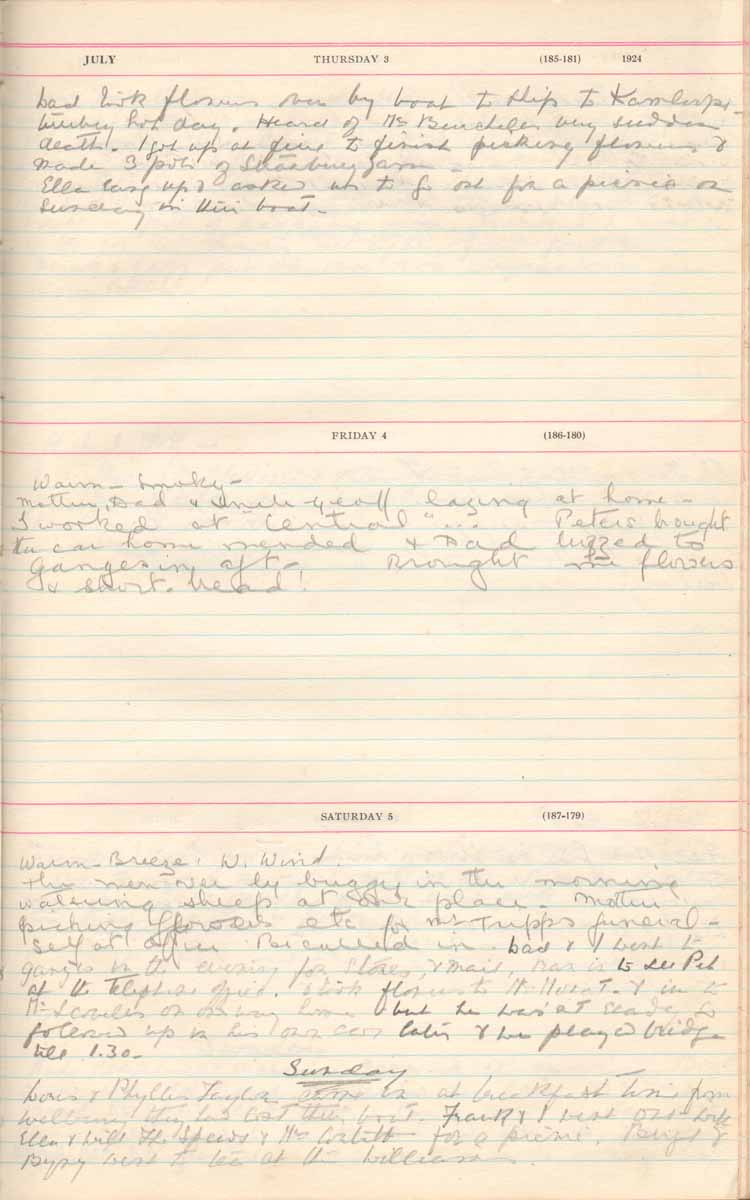 JULY THURSDAY 3 (185-181) 1924
Dad took flowers over by boat to ship to Kamloops
hot day. Heard of Mr very sudden
death. I got up at five to finish picking flowers &
made 3 pots of jam.
Ella rang up & asked us to go out for a picnic on
Sunday in their boat.
FRIDAY 4 (186-180)
Warm - Smoky -
Mother, Dad & Uncle Geoff lazing at home -
I worked at "Central" ... Peters brought
the car home mended & Dad to
Ganges in aft - Brought me flowers
& short-bread!
SATURDAY 5 (187-179)
Warm - Breeze. W. Wind.
The men by buggy in the morning
watering sheep at place. Mother
picking flowers etc for Mr Tripps funeral -
Self at office called in. Dad & I went to
Ganges in the evening for stores, & mail, to see
at the Telephone Office. took flowers to & in to
Mr on our way home but he wasn't ready so
followed up in his own car later & we played bridge
till 1.30 -
Sunday
Doris & Phyllis Taylor came in at breakfast time from
they had lost their boat. Frank & I went out with
Ella & Will The Speeds & Mrs for a picnic. &
went to tea at the Williams.